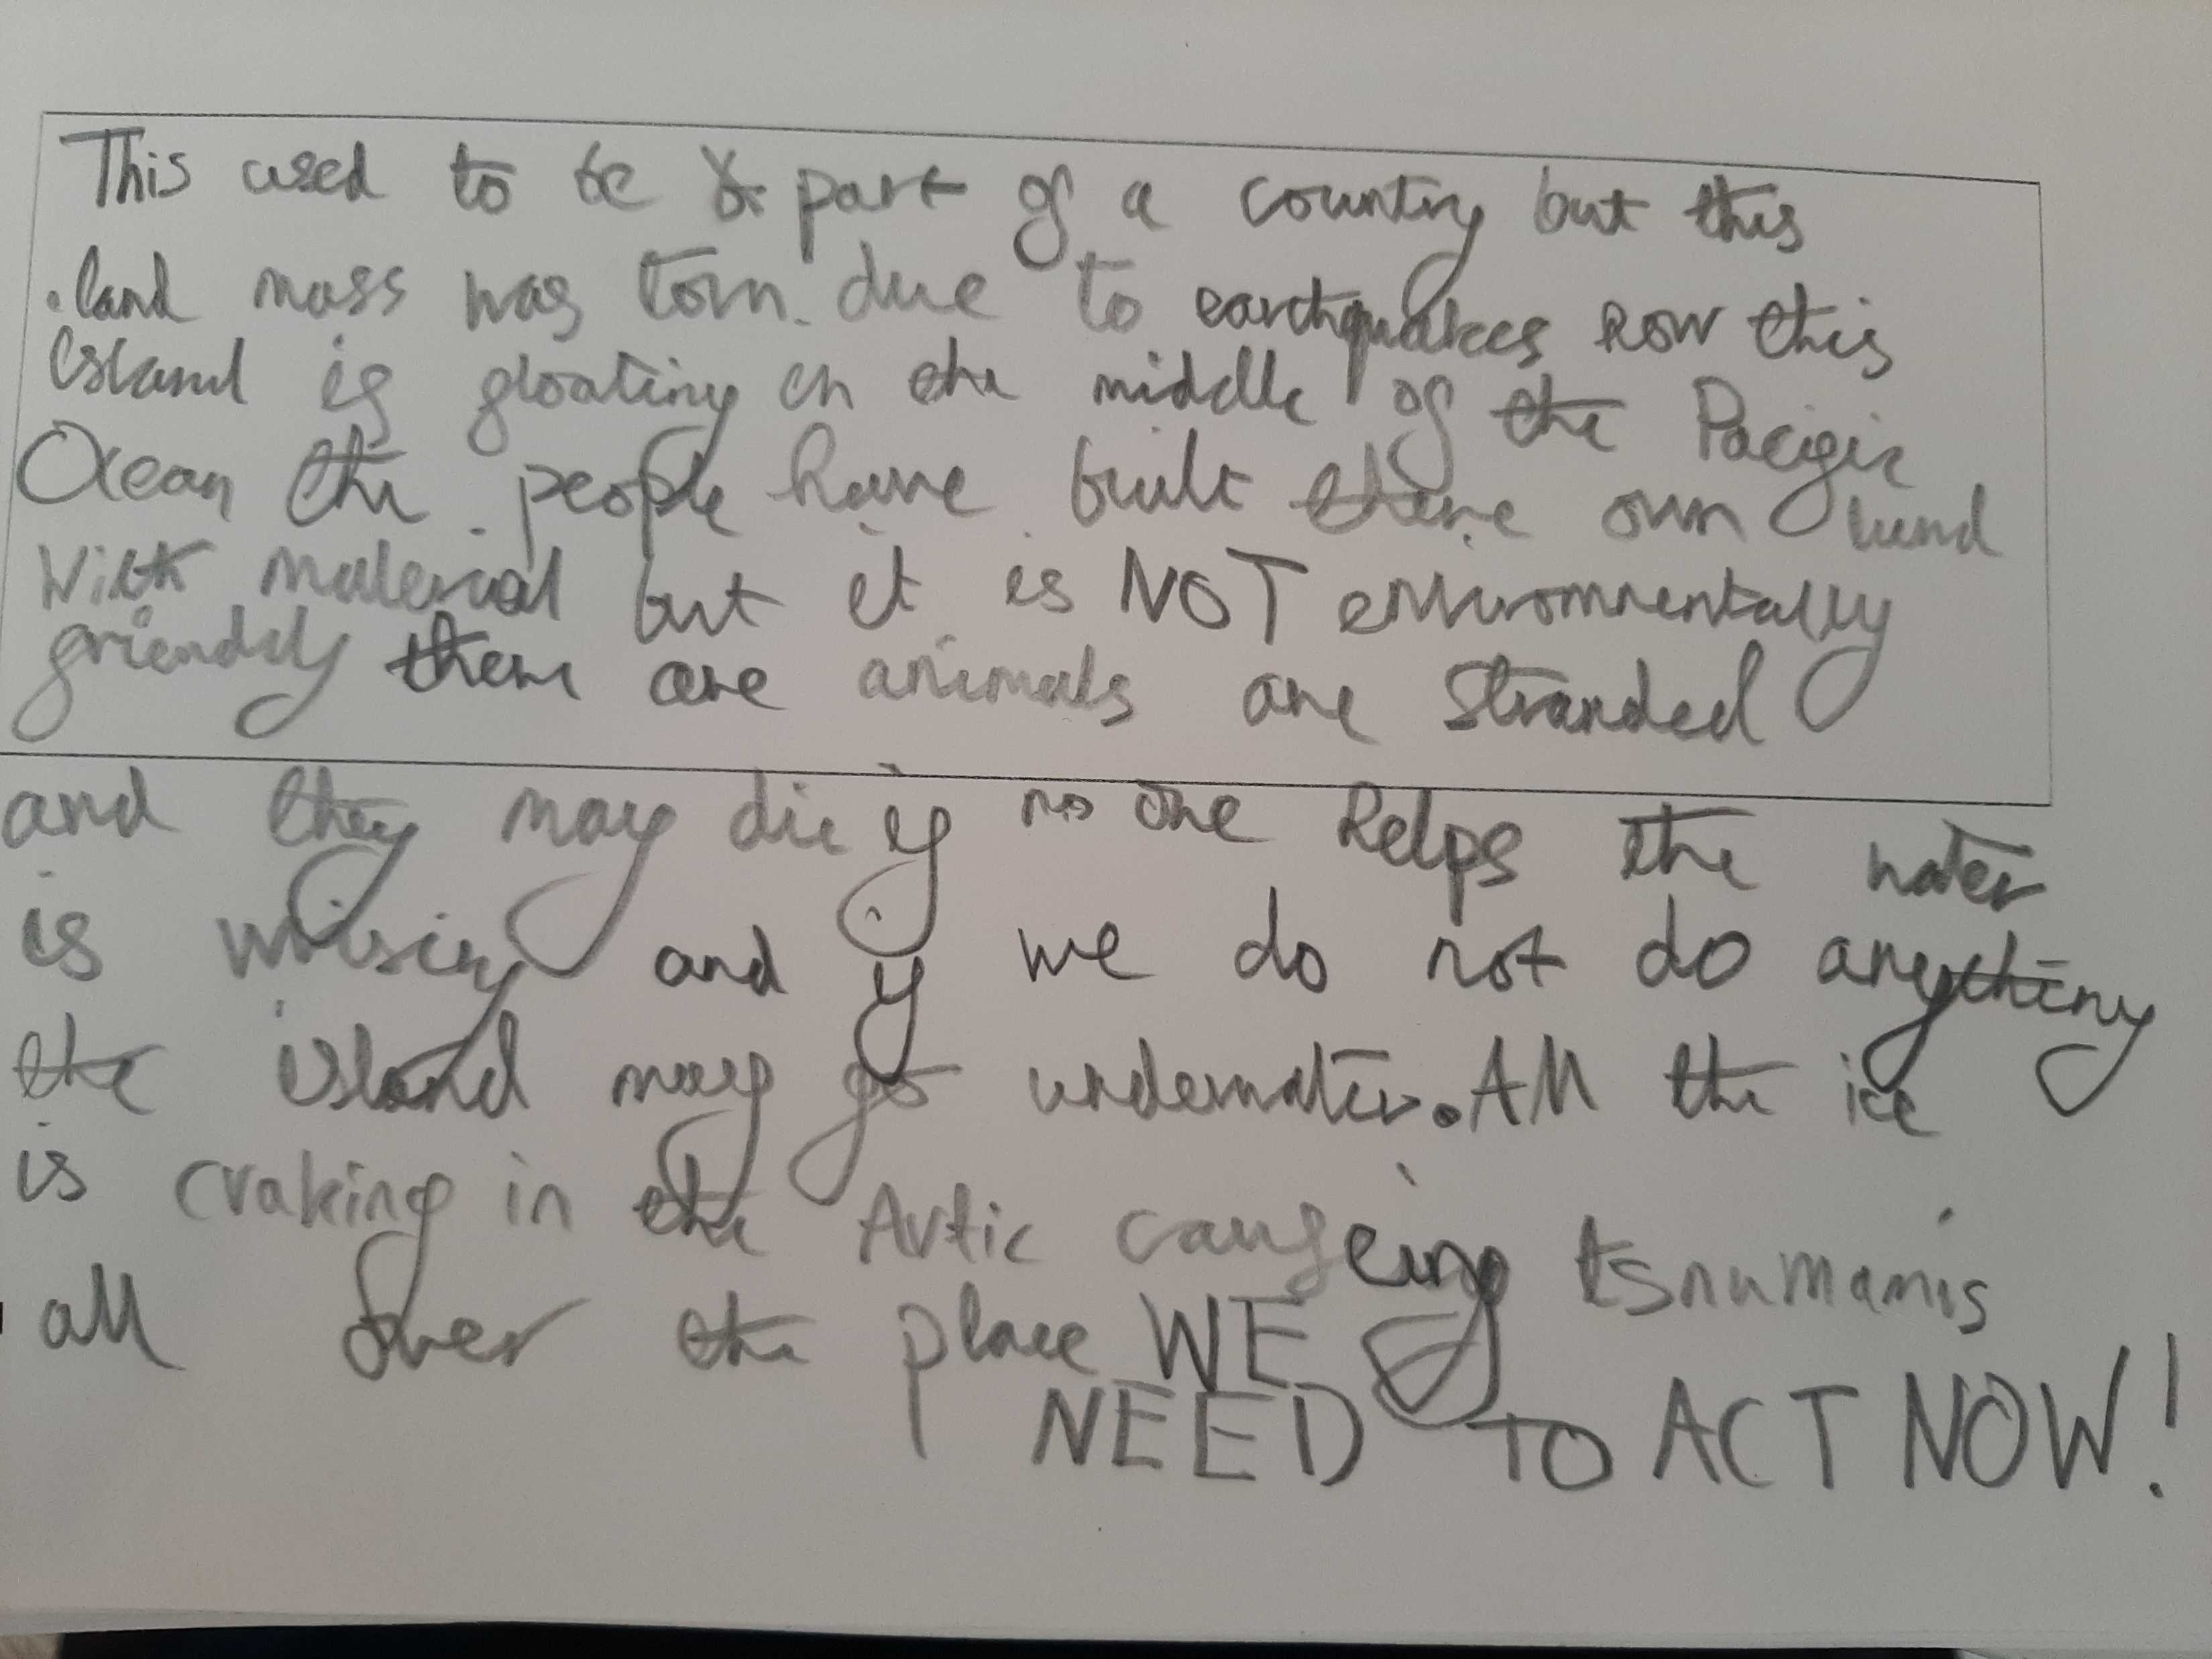 This used to be part of a country but this
land mass was torn due to earthquakes now this
island is floating in the middle of the Pacific
Ocean the people have built there own land
With material but it is NOT environmentally
friendly there are animals are stranded
and they may die if no one helps the water
is wrising and if we do not do anything
the island may go underwater. All the ice
is craking in the Artic causeing tsnumamis
all over the place WE
NEED TO ACT NOW!